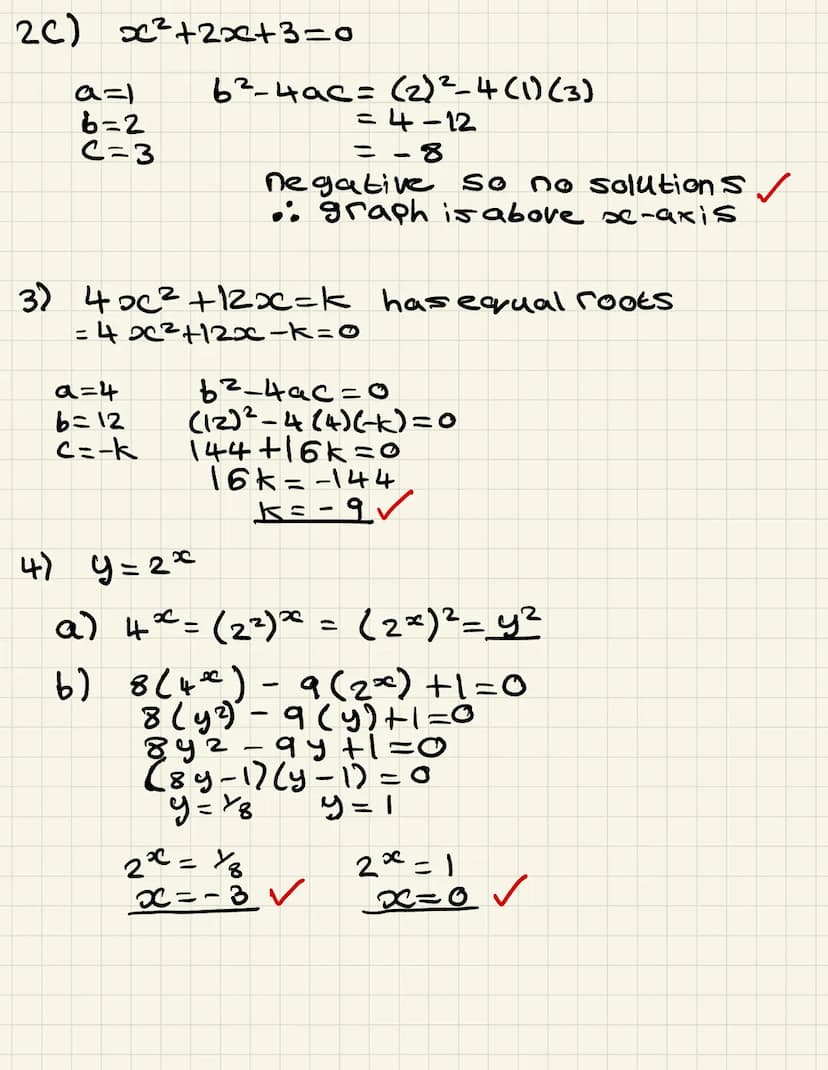 2c) x²+2x+3=0
a=1 b²-4ac= (2)²-4(1)(3)
b=2 = 4-12
c=3 = -8
negative so no solutions ✓
∴ graph is above x-axis
3) 4x²+12x=k has equal roots
=4x²+12x-k=0
a=4 b²-4ac=0
b=12 (12)²-4(4)(-k)=0
c=-k 144+16k=0
16k=-144
k=-9 ✓
4) y=2ˣ
a) 4ˣ= (2²)ˣ = (2ˣ)²= y²
b) 8(4ˣ) - 9(2ˣ) +1=0
8(y²) - 9(y)+1=0
8y² - 9y +1=0
(8y-1)(y-1)=0
y=1/8 y=1
2ˣ=1/8 2ˣ=1
x=-3 ✓ x=0 ✓